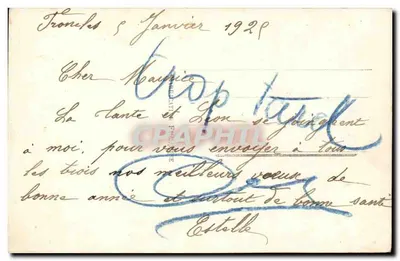 Froncles 5 Janvier 1925
Cher Maurice
trop tard
La tante et Léon se joignent
à moi, pour vous envoyer à tous
les trois nos meilleurs voeux de
bonne année et surtout de bonne santé
Estelle